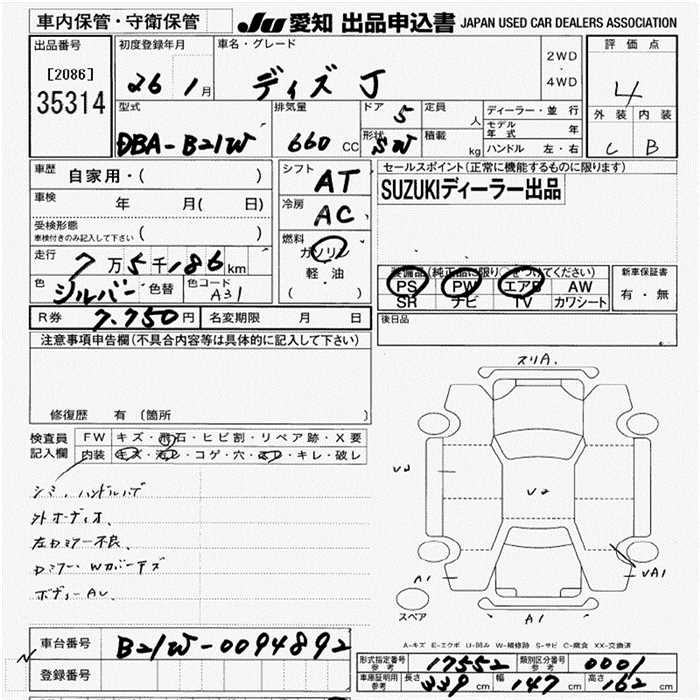 車内保管・守衛保管 JU 愛知 出品申込書 JAPAN USED CAR DEALERS ASSOCIATION
出品番号 初度登録年月 車名・グレード 2WD ・ 4WD 評価点
[2086] 26 1月 ディズ J 4
35314
型式 排気量 ドア 5 定員 人 ディーラー・並行 外装 内装
DBA-B21W 660 CC 形状 SW 積載 kg モデル年式 年 C B
ハンドル 左・右
車歴 自家用・( ) シフト AT セールスポイント(正常に機能するものに限ります)
車検 年 月( 日) 冷房 AC SUZUKIディーラー出品
受検形態 車検付きのみ記入して下さい ( )
燃料 ガソリン
走行 7万5千186km 軽・油 装備品(純正品に限り○をつけてください) 新車保証書
色 シルバー 色替 色コード A31 ( ) PS PW エアB AW 有・無
SR ナビ TV カワシート
R券 7.750円 名変期限 月 日 後日品
注意事項申告欄(不具合内容等は具体的に記入して下さい)
修復歴 有 (箇所
検査員記入欄 FW キズ・飛石・ヒビ割・リペア跡・X要
内装 キズ・汚レ・コゲ・穴・スレ・キレ・破レ
シミ、ハンドルハゲ
外オーディオ、
左Dミラー不良、
Dミラー、Wカバーキズ
ボディーAU、
スリA.
U2
U2
A1
UA1
スペア
A1
A-キズ E-エクボ U-凹み W-補修跡 S-サビ C-腐食 XX-交換済
車台番号 B21W-0094892
登録番号
形式指定番号 参考 17552 類別区分番号 参考 0001
車庫証明用 参考 長さ 339cm 幅 147cm 高さ 162cm